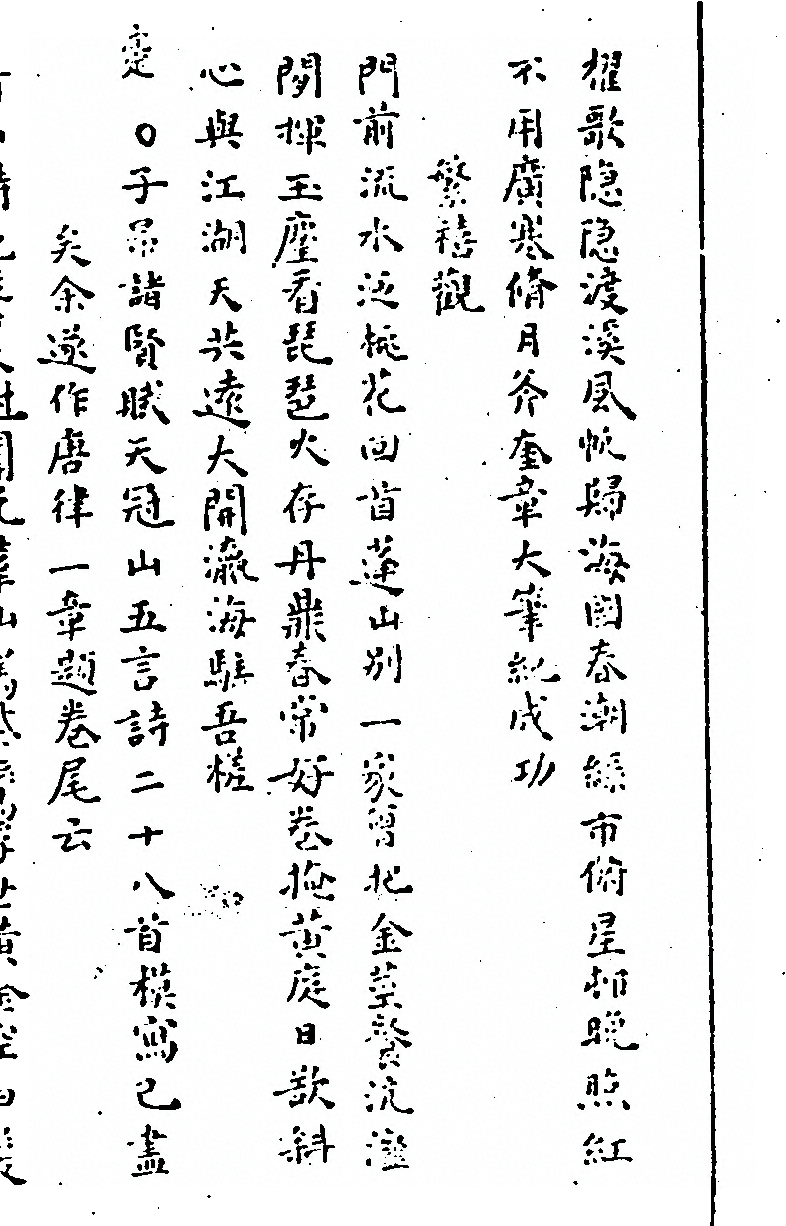 櫂歌隐隐渡溪風帆歸海國春潮綠市俯星邨晚照紅
不用廣寒脩月斧奎章大筆紀成功
繁禧觀
門前流水泛桃花回首蓬山別一家曾把金莖餐沆瀣
閒揮玉麈看琵琶火存丹鼎春常好卷掩黃庭日欲斜
心與江湖天共遠大開瀛海駐吾槎
〇子昂諸賢賦天冠山五言詩二十八首模寫已盡
矣余遂作唐律一章題卷尾云